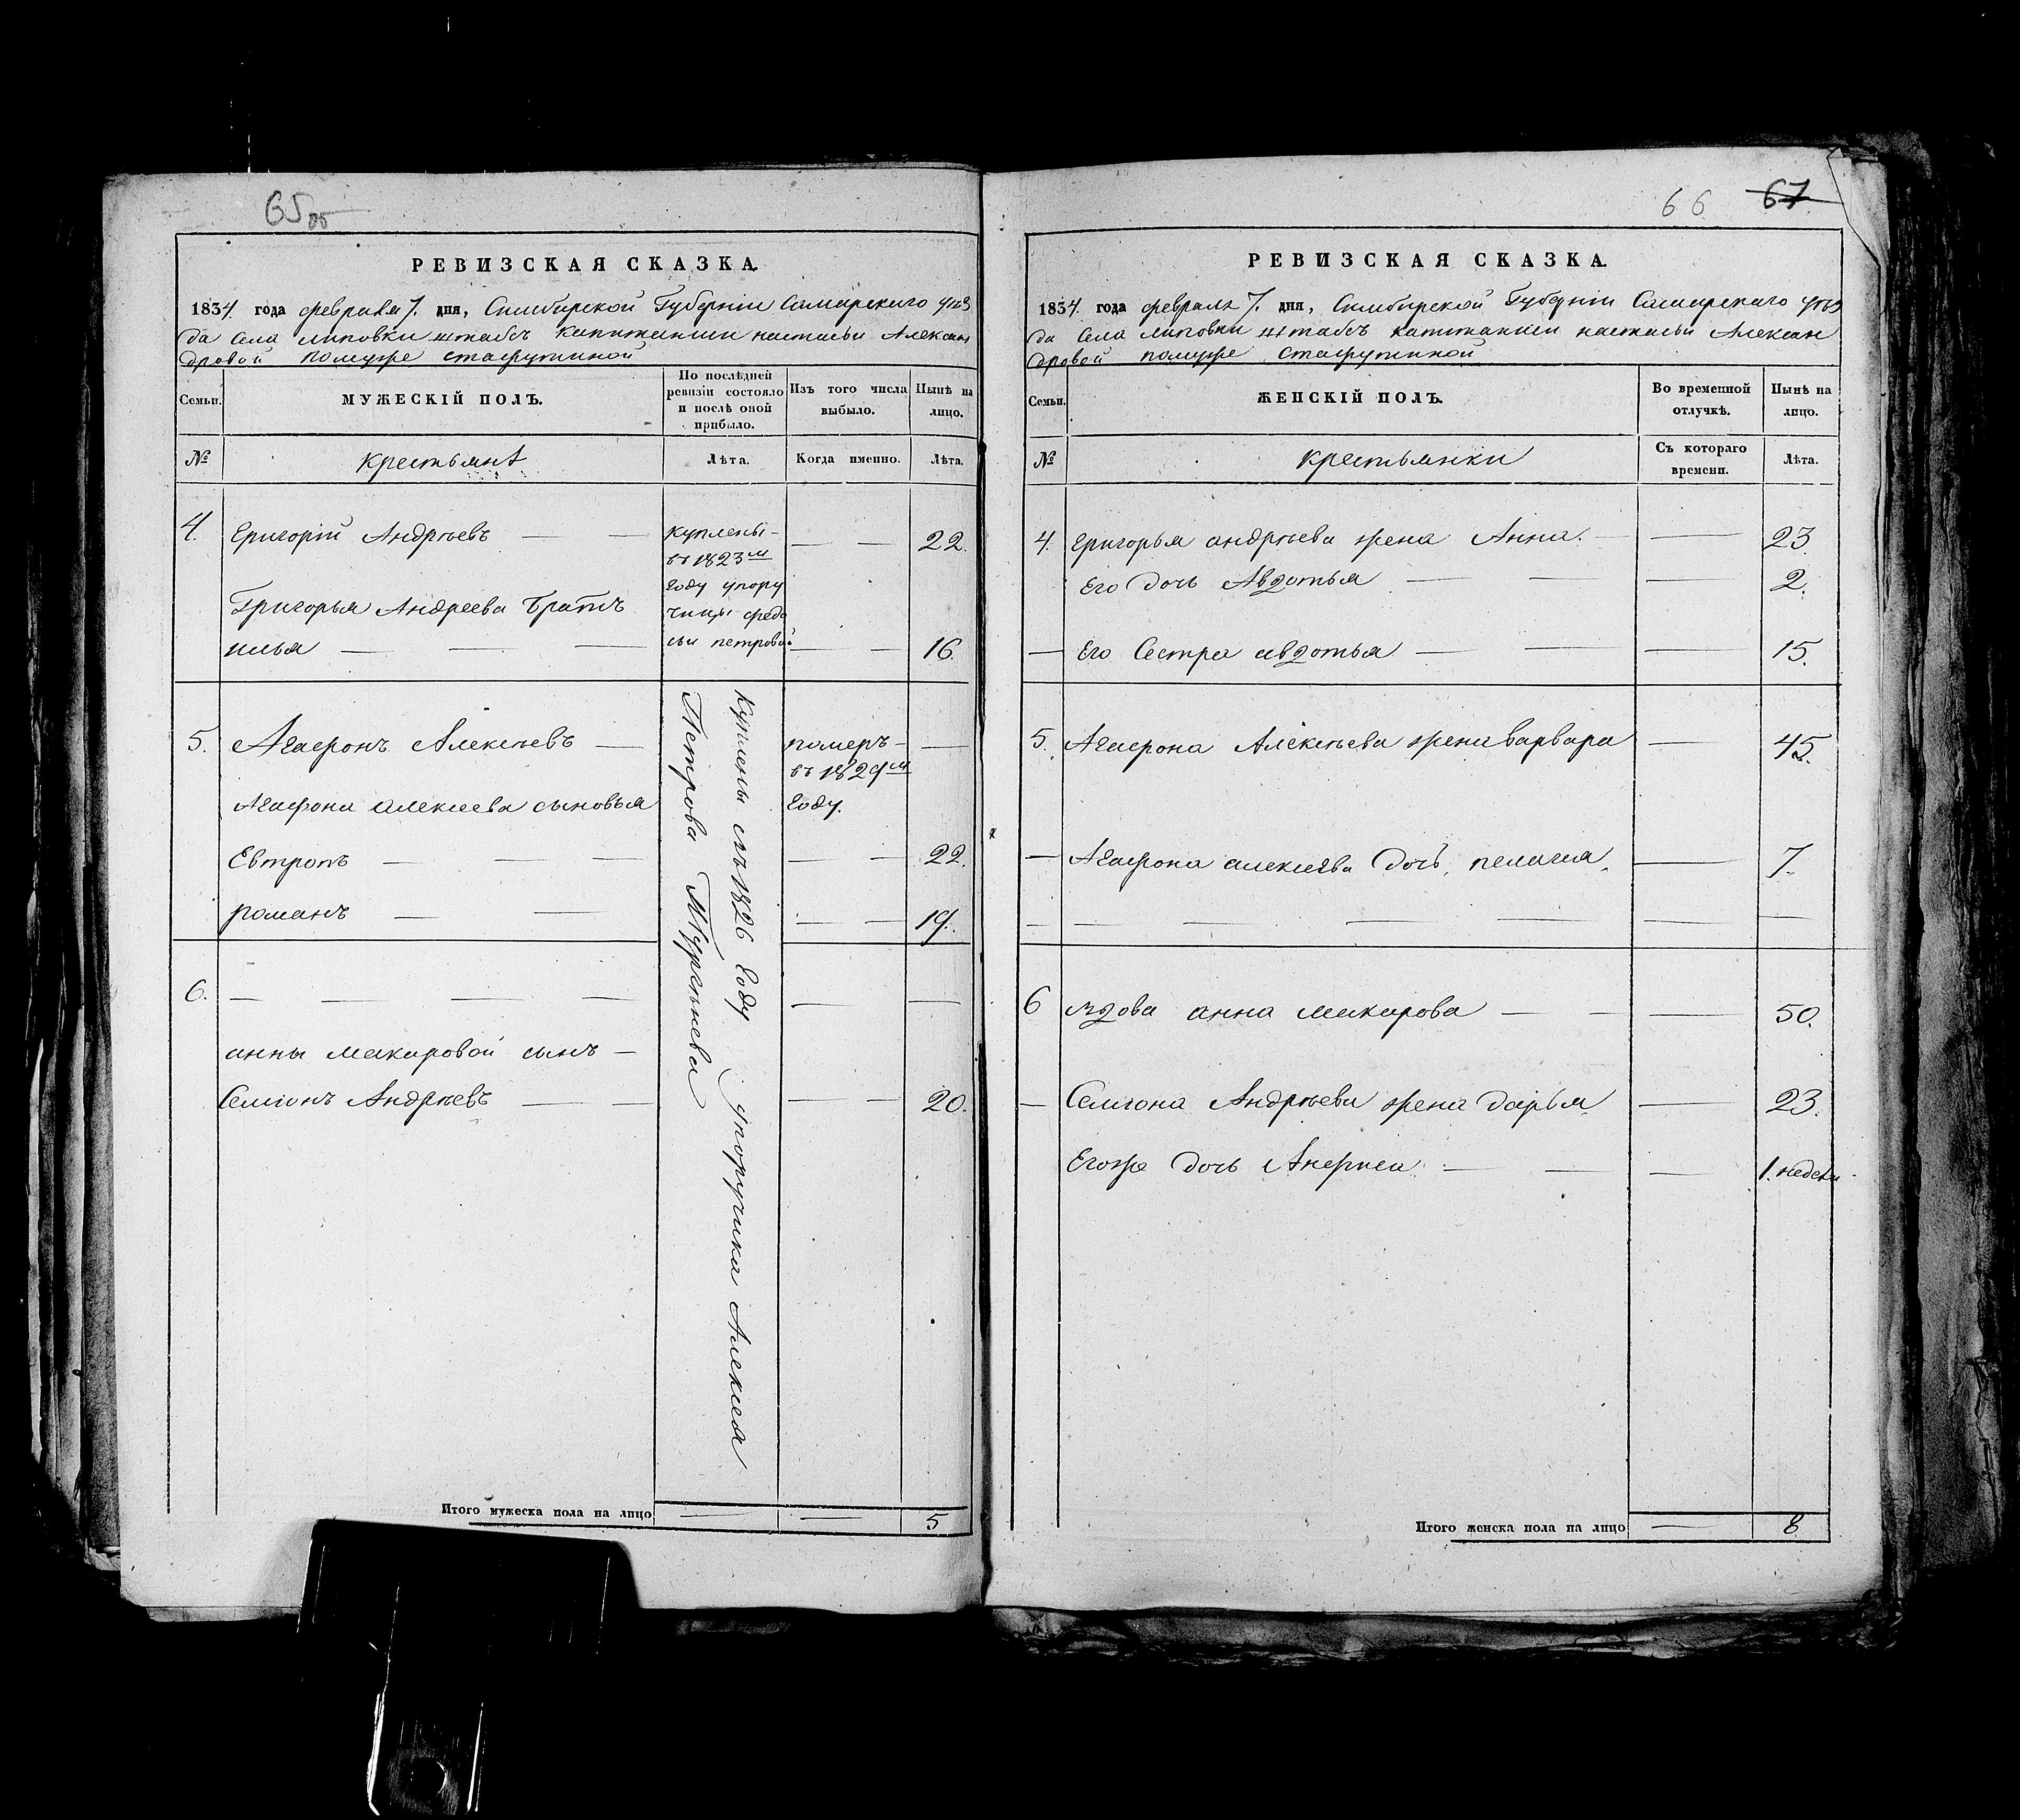 65 об
РЕВИЗСКАЯ СКАЗКА.
1834. года февраля 7. дня, Симбирской Губерніи Самарскаго уѣз
да села липовки штабсъ капитанши настасьи Алексан
дровой помужѣ стафутиной
Семьи.
МУЖЕСКІЙ ПОЛЪ.
По послѣдней ревизіи состояло и послѣ оной прибыло.
Изъ того числа выбыло.
Нынѣ на лицо.
№
крестьянѣ
Лѣта.
Когда именно.
Лѣта.
4. Григорій Андрѣевъ — — куплены — — 22.
въ 1823м
Году упору
Григорья Андреева братъ чицы федо
илья — — — сьи петровой — — 16.
5. Агафонъ Алексѣевъ — померъ — —
въ 1829м
Агафона алексеева сыновья Году.
Евтропъ — — — — — 22.
романъ — — — — 19.
Куплены въ 1826 Году упоручика Алексея
Петрова
6. — — — — — — —
анны макаровой сынъ —
Семіонъ Андрѣевъ — — — — 20.
Итого мужеска пола на лицо — — 5
66 67
РЕВИЗСКАЯ СКАЗКА.
1834. года февраля 7. дня, Симбирской Губерніи Самарскаго уѣз
да Села липовки штабсъ капитанши настасьи Алексан
дровой помужѣ стафутиной
Семьи.
ЖЕНСКІЙ ПОЛЪ.
Во временной отлучкѣ.
Нынѣ на лицо.
№
крестьянки
Съ котораго времени.
Лѣта.
4. Григорья андрѣева жена Анна. — — 23
Его дочь Авдотья — — — 2.
— Его Сестра авдотья — — — 15.
5. Агафона Алексѣева жена варвара — 45.
— Агафона алексеева дочь, пелагея. — 7.
— — — — — — —
6 вдова анна макарова — — — 50.
— Семіона Андрѣева жена дарья — 23.
Егожѣ дочь — — — 1. недели
Итого женска пола на лицо — 8